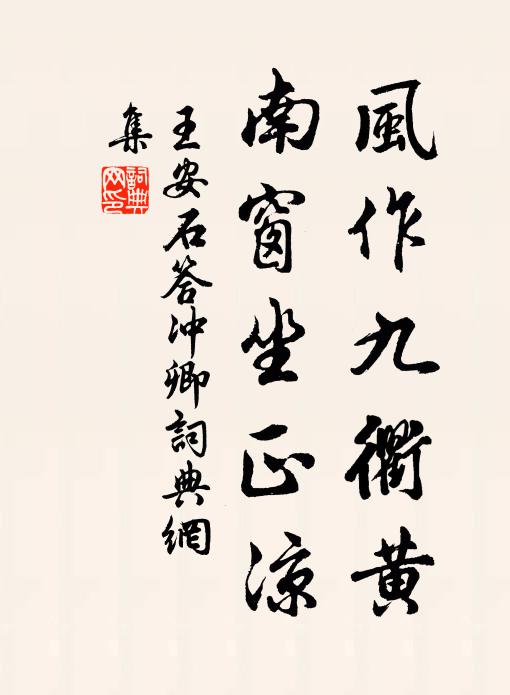 風作九衢黄
南窗坐正涼
王安石答冲卿詞典網
集
詞典网印